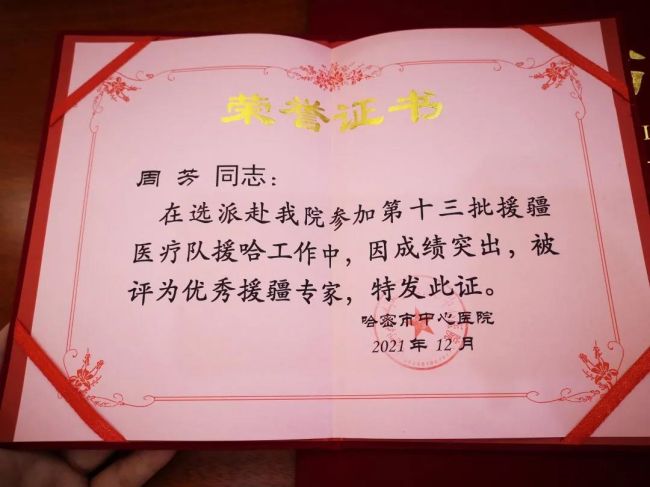 荣誉证书
周芳 同志：
在选派赴我院参加第十三批援疆
医疗队援哈工作中，因成绩突出，被
评为优秀援疆专家，特发此证。
哈密市中心医院
2021年12月